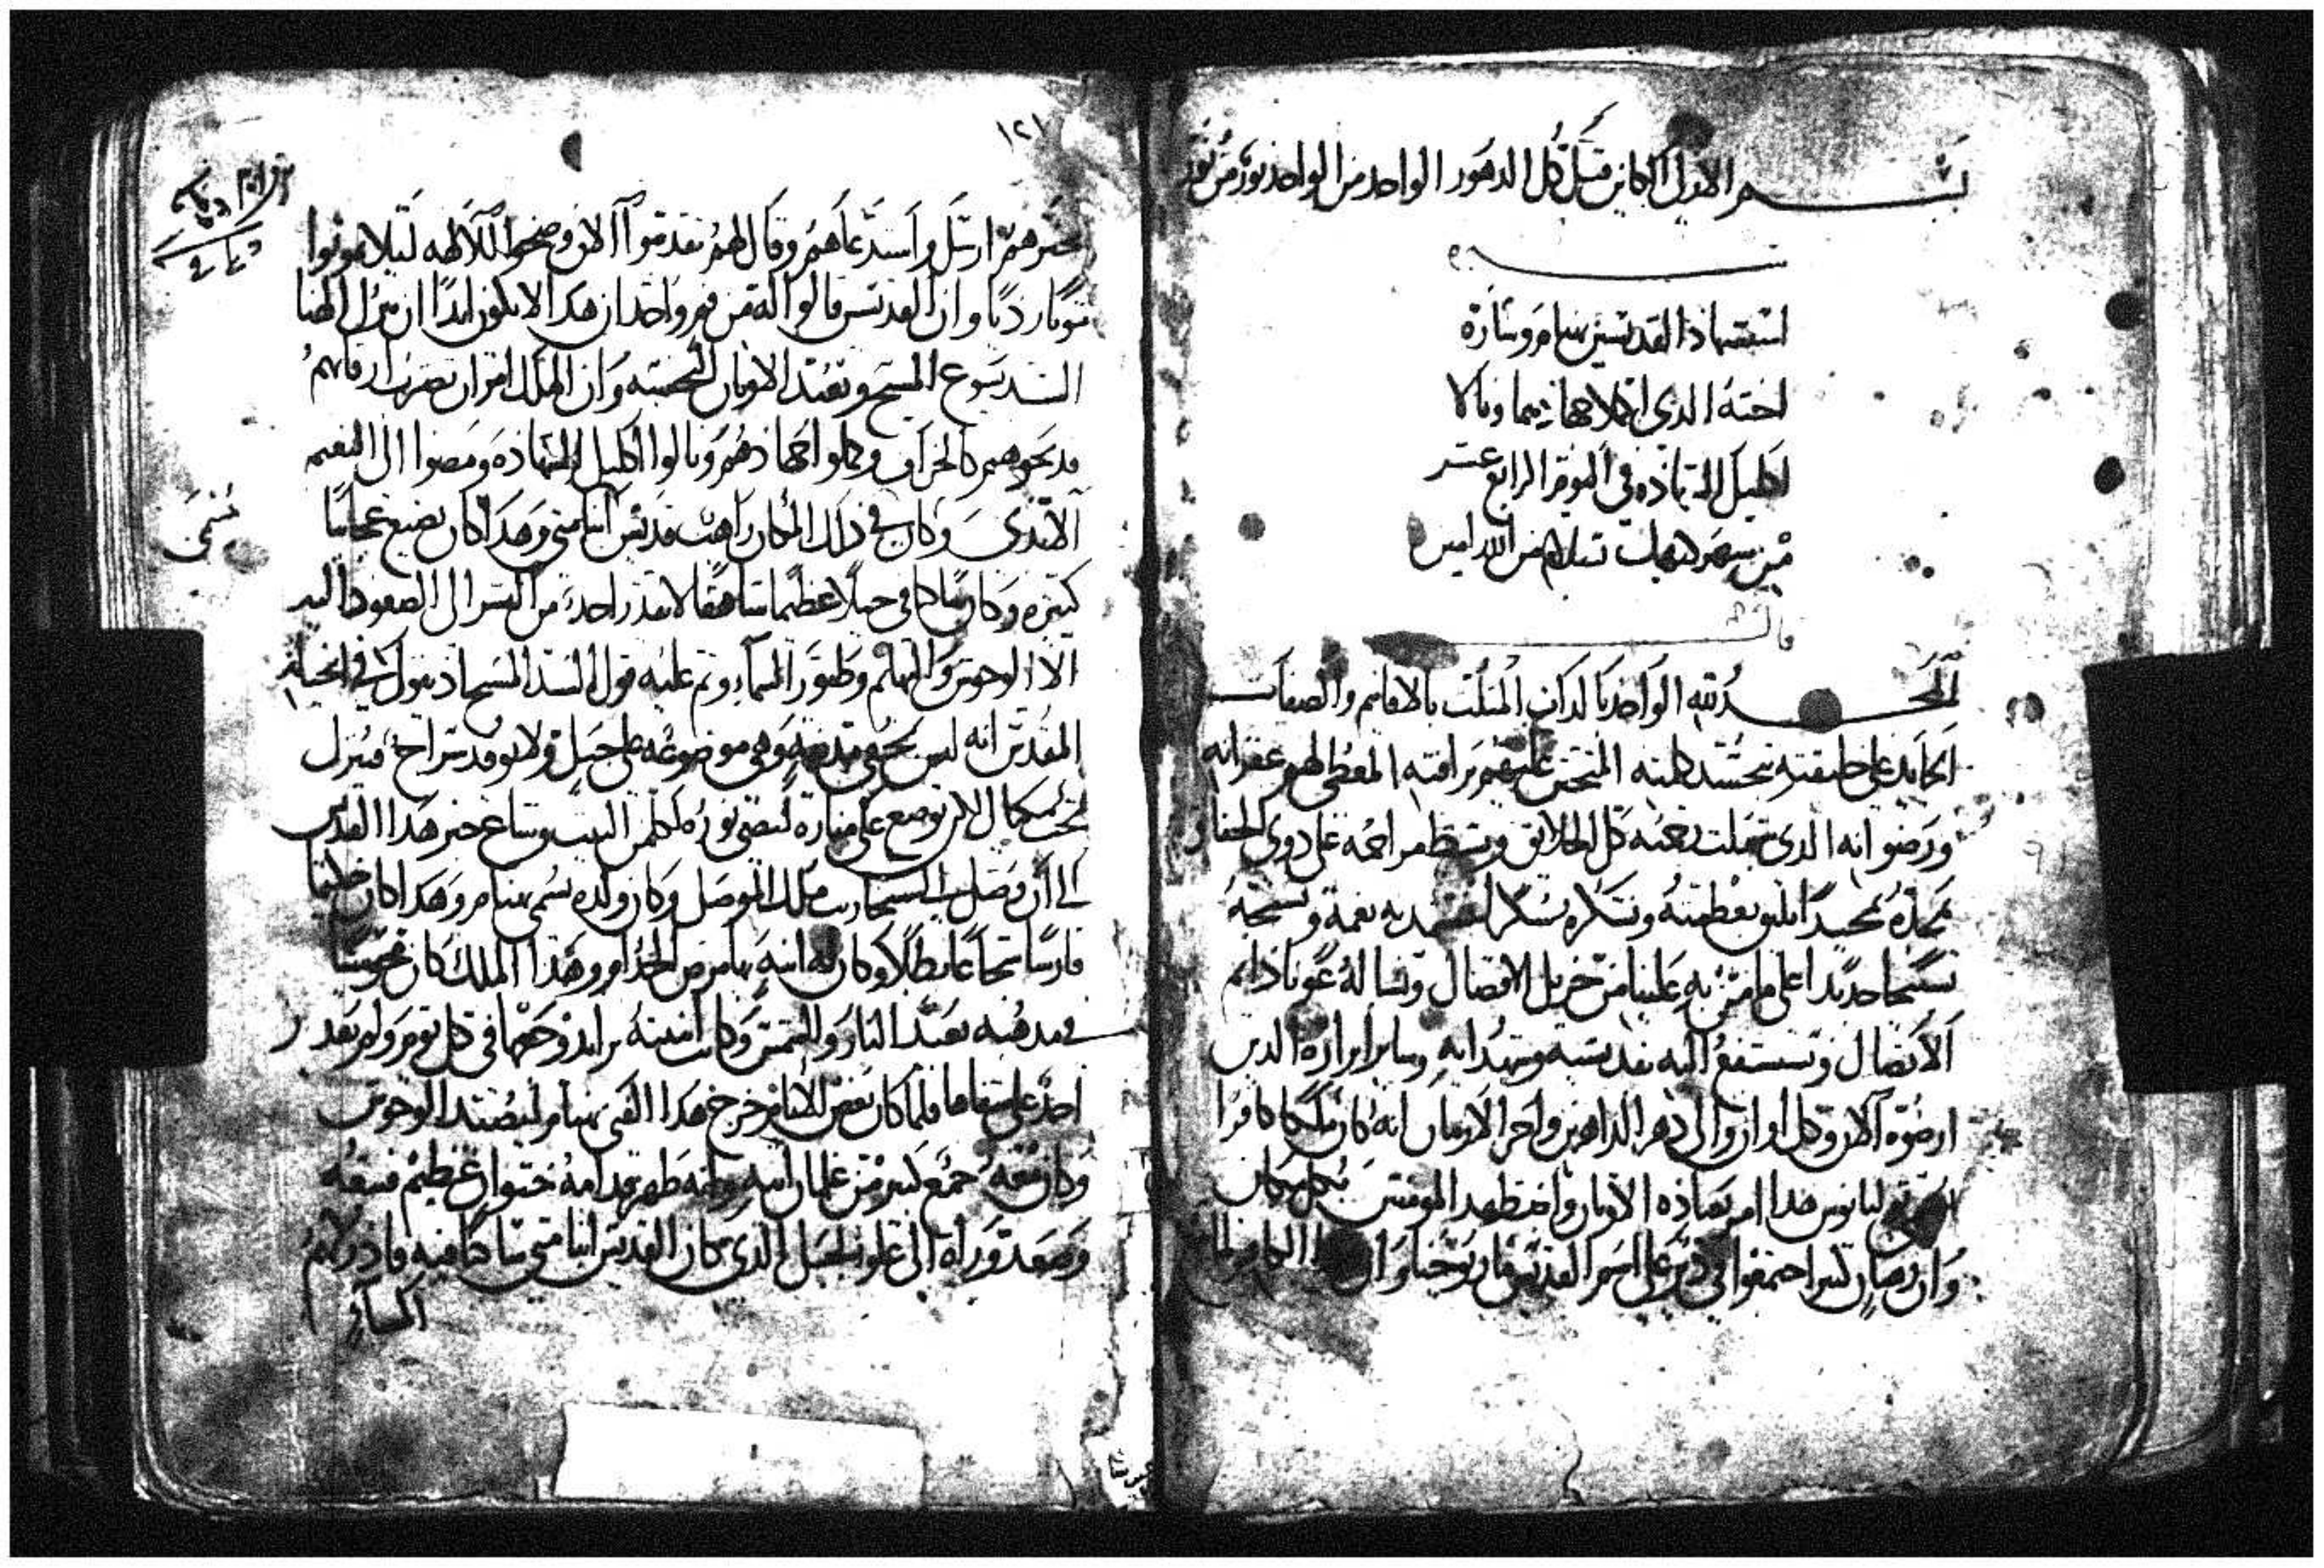 بسم الازلي الكاين قبل كل الدهور الواحد من الواحد نور من نور
استشهاد القديسين بهنام وسارة
اخته الذي اكملا جهادهما ونالا
اكليل الشهاده في اليوم الرابع عشر
من شهر كيهك بسلام من الله امين
قالت
الحمد لله الواحد بالذات المثلت بالاقانيم والصفات
الجايد على خليقته بتجسد كلمته المتحنن عليهم برافته المعطي لهم غفرانه
ورضوانه الدي شملت نعمته كل الخلايق وبسط مراحمه على دوي
نمجده تمجيدا يليق بعظمته ونشكره شكرا به نعمة ونسبحه
تسبيحا جديدا على ما من به علينا من جزيل الافضال ونساله عونا دايم
الاتصال ونستشفع اليه بقديسيه وشهدايه وساير ابراره الدين
ارضوه الان وكل اوان والى دهر الداهرين واخر الازمان انه كان ملكا كافرا
يوليانوس هدا امر بعباده الاوثان واضطهد المومنين بكل مكان
وان رهبان كثيرا اجتمعوا في دير على اسم القديس ماري يوحنا وان الكافر لما
١٢١
خبرهم ارسل واستدعاهم وقال لهم تقدموا الان وضحوا للالهه ليلا تموتوا
موتا رديا وان القديسين قالوا له من فم واحد ان هدا لا يكون ابدا ان نترك الهنا
السيد يسوع المسيح ونعبد الاوثان النجسه وان الملك امر ان تضرب ارقابهم
فدبحوهم كالخراف وكملوا جهادهم ونالوا اكليل الشهاده ومضوا الى النعيم
الابدي وكان في دلك المكان راهب قديس انبا متى وهدا كان يصنع عجايبا
كثيره وكان ساكنا في جبلا عظيما شاهقا لا يقدر احد من البشر الى الصعود اليه
الا الوحوش والبهايم وطيور السماء وتم عليه قول السيد المسيح اذ يقول في انجيله
المقدس انه ليس تخفى مدينه وهي موضوعه على جبل ولا يوقد سراج فيترك
تحت مكيال لاكن يوضع على مناره ليضي نوره لكل من البيت وشاع خبر هدا القديس
الى ان وصل الى سنحاريب ملك الموصل وكان ولده يسمى بهنام وهدا كان حليما
فارسا شجاعا بطلا وكان له ابنة بها مرض الجدام وهدا الملك كان مجوسيا
في مدهبه يعبد النار والشمس وكانت ابنته يزايد وجعها في كل يوم ولم يقدر
احد على شفاها فلما كان بعض الايام خرج هدا الفتى بهنام ليصيد الوحوش
وكان معه جمع كبير من غلمان ابيه وانه ظهر قدامه حيوان عظيم فتبعه
وصعد وراه الى علو الجبل الدي كان القديس انبا متى ساكنا فيه فادركهم
المسا